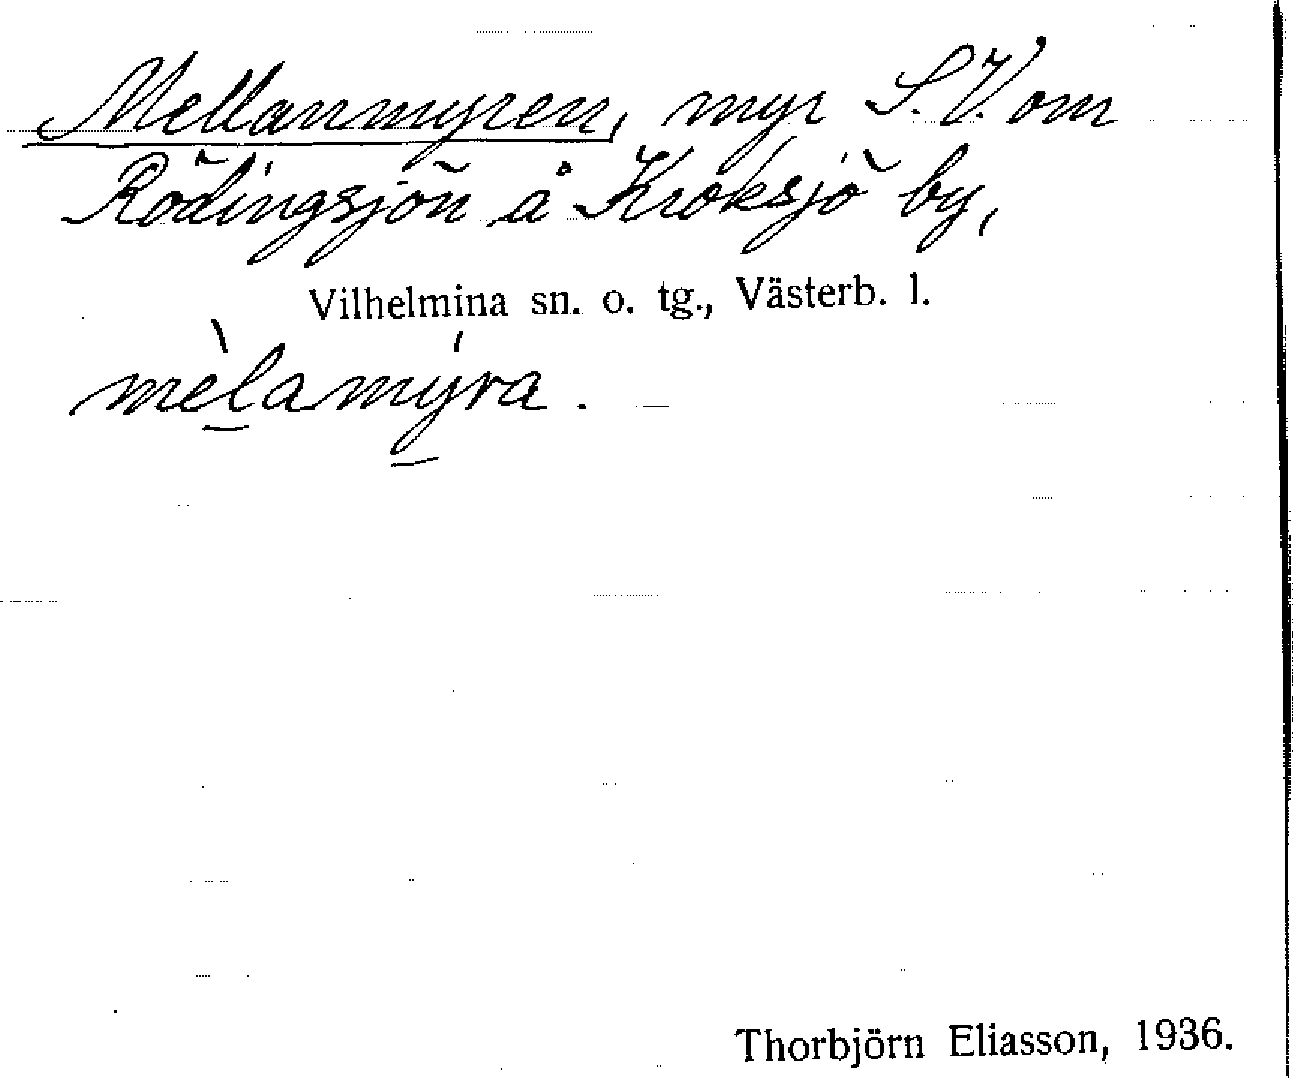 Mellanmyren, myr S.V. om
Rödingsjön å Kroksjö by,
Vilhelmina sn. o. tg., Västerb. l.
mèlamýra.
Thorbjörn Eliasson, 1936.